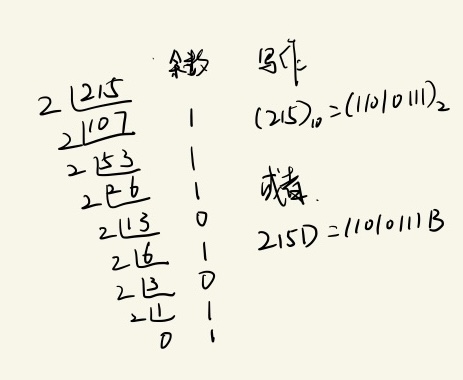 余数
2 215
2 107 1
2 53 1
2 26 1
2 13 0
2 6 1
2 3 0
2 1 1
0 1
写作
(215)₁₀=(11010111)₂
或者.
215D=11010111B